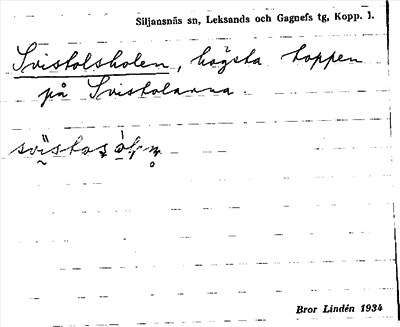 Siljansnäs sn, Leksands och Gagnefs tg, Kopp. l.
Svistolsholen, högsta toppen
på Svistolarna.
Bror Lindén 1934